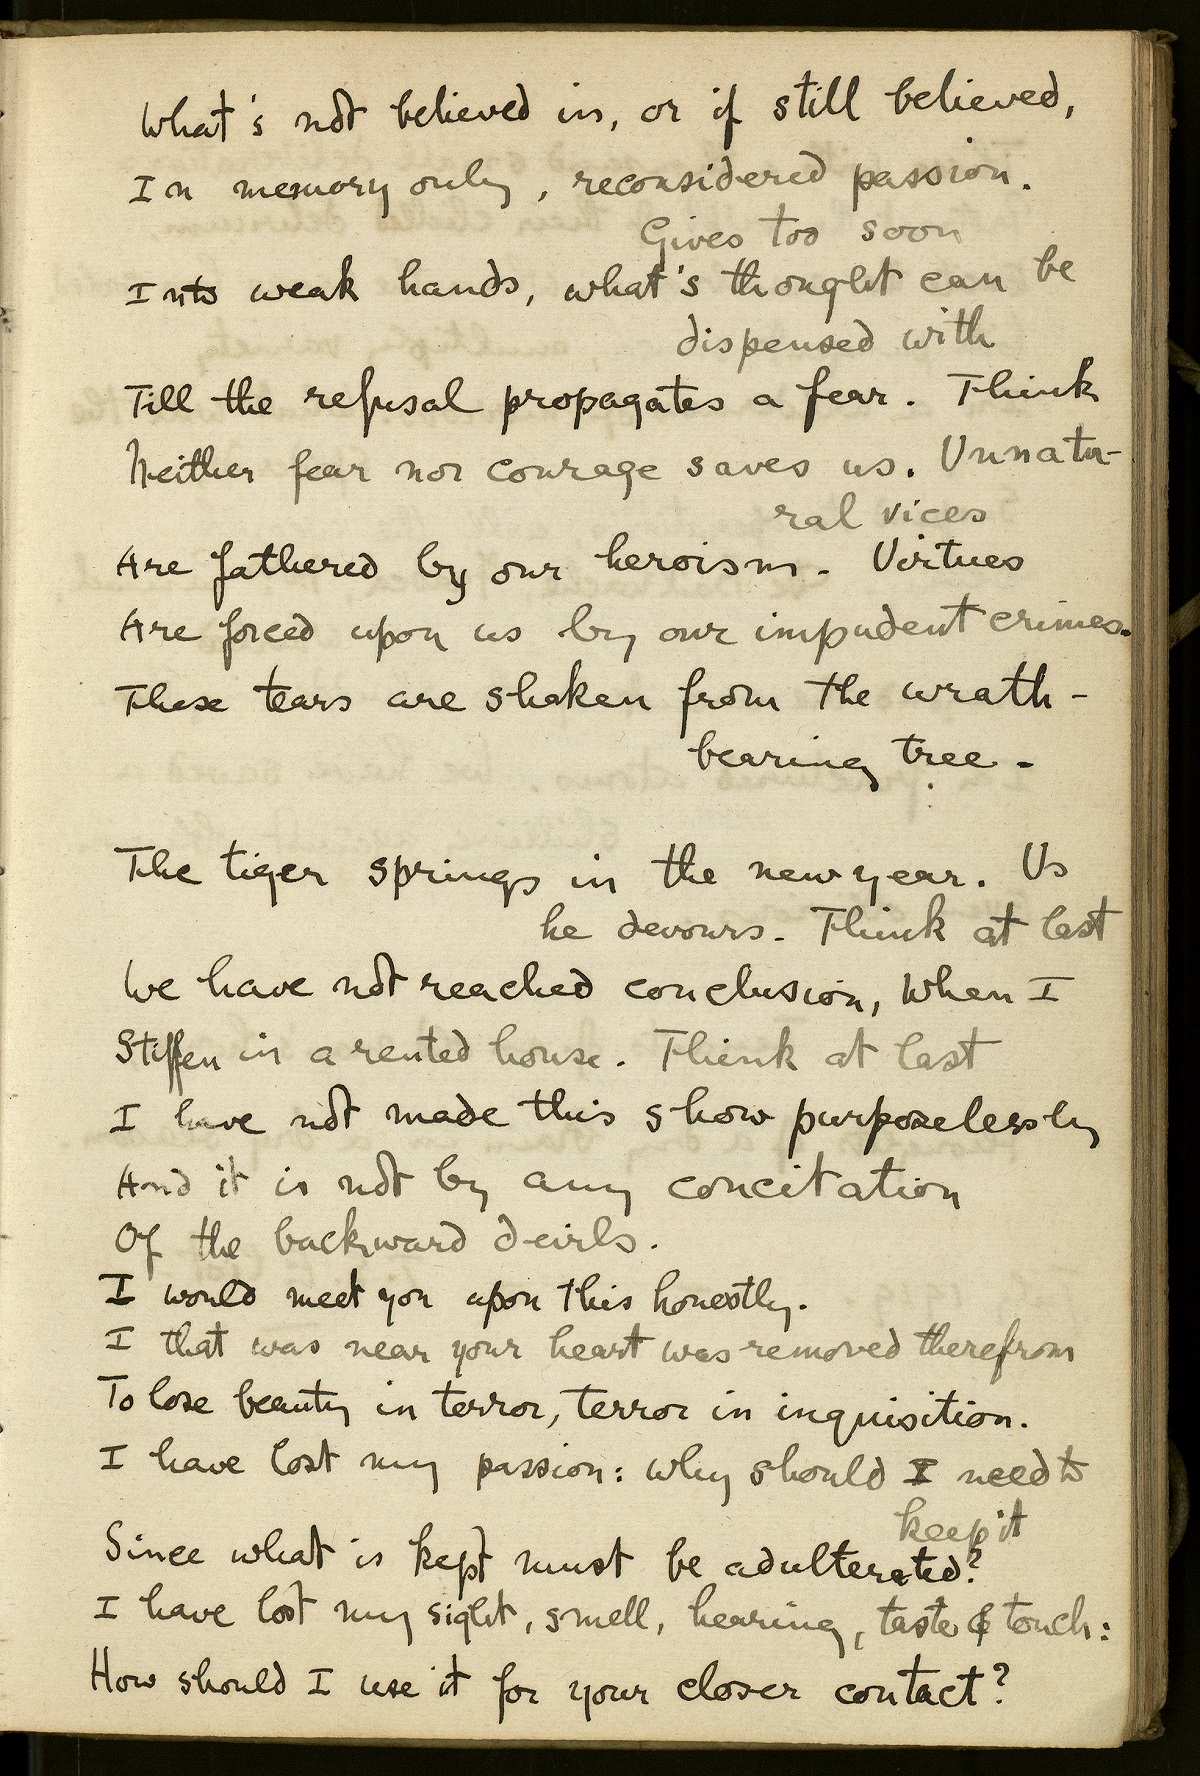 What's not believed in, or if still believed,
In memory only, reconsidered passion.
Gives too soon
Into weak hands, what's thought can be
dispensed with
Till the refusal propagates a fear. Think
Neither fear nor courage saves us. Unnatu-
ral vices
Are fathered by our heroism. Virtues
Are forced upon us by our impudent crimes.
These tears are shaken from the wrath-
bearing tree.
The tiger springs in the new year. Us
he devours. Think at last
We have not reached conclusion, when I
Stiffen in a rented house. Think at last
I have not made this show purposelessly
And it is not by any concitation
Of the backward deivls.
I would meet you upon this honestly.
I that was near your heart was removed therefrom
To lose beauty in terror, terror in inquisition.
I have lost my passion: why should I need to
keep it
Since what is kept must be adulterated?
I have lost my sight, smell, hearing, taste & touch:
How should I use it for your closer contact?